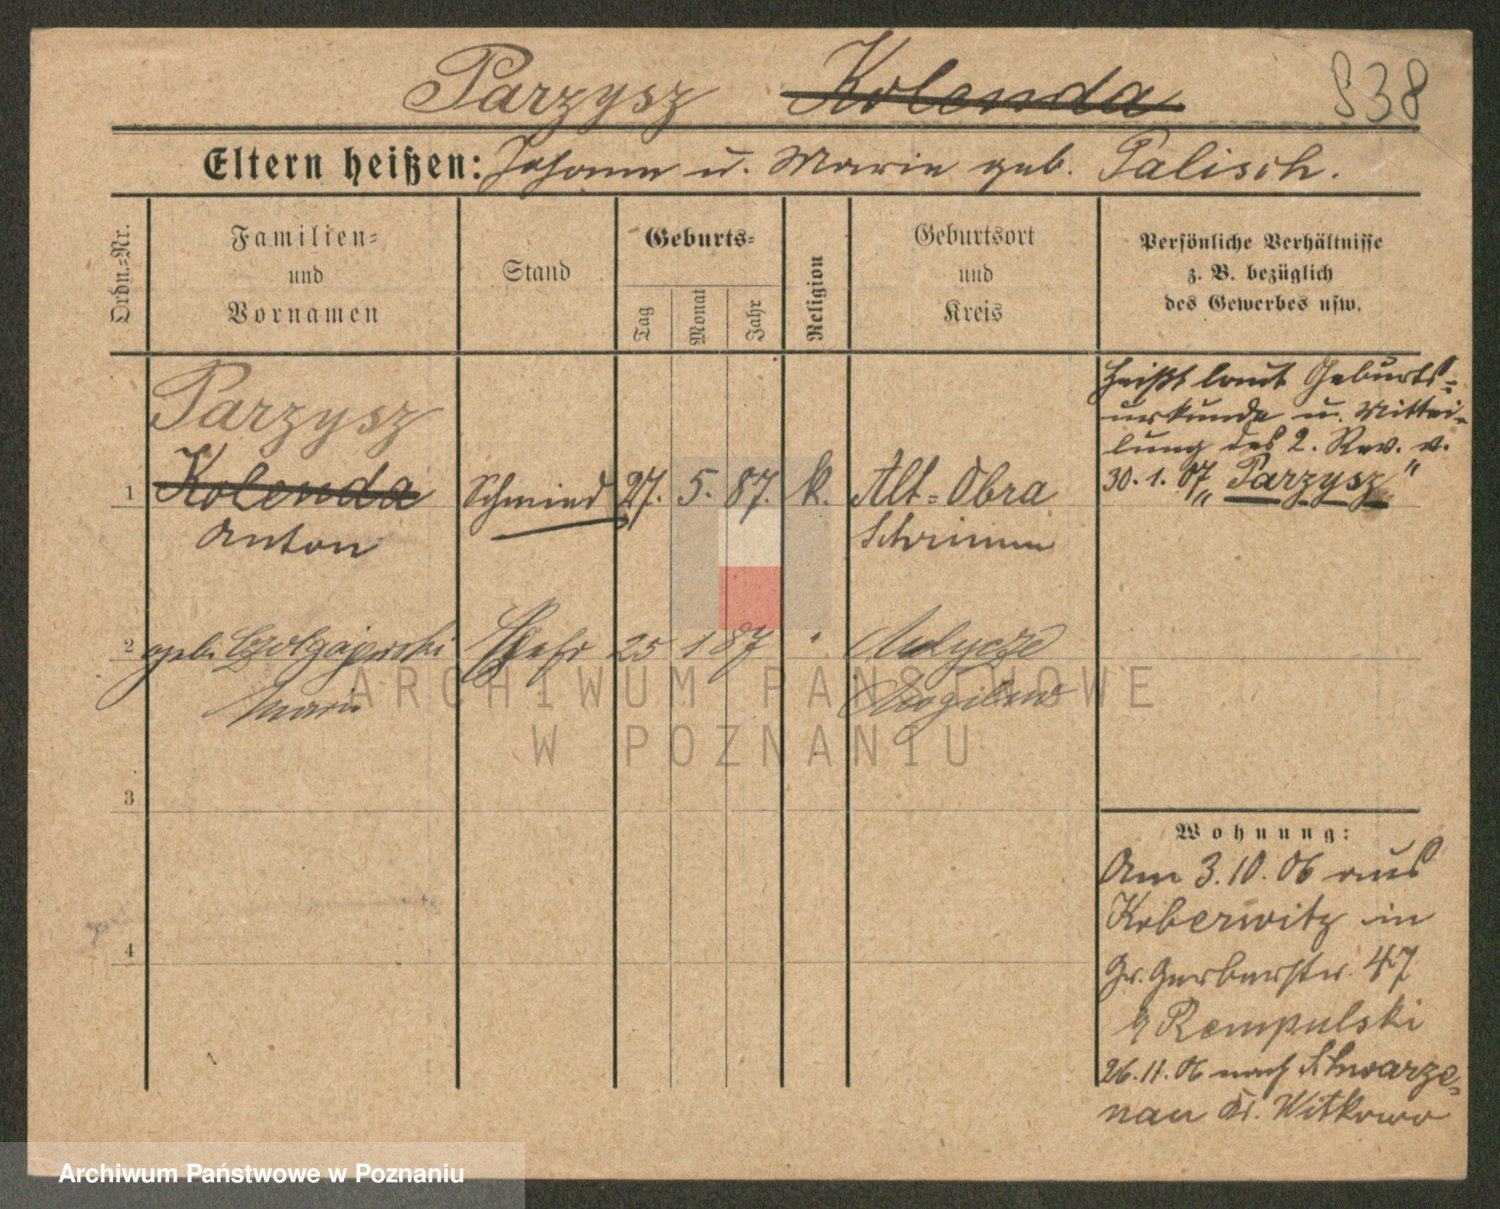 Parzysz Kolenda 838
Eltern heißen: Johann u. Marie geb. Palisch.
Ordn.-Nr.
Familien-
und
Vornamen
Stand
Geburts-
Tag
Monat
Jahr
Religion
Geburtsort
und
Kreis
Persönliche Verhältnisse
z. B. bezüglich
des Gewerbes usw.
Parzysz
1 Kolenda Schmied 27. 5. 87. k. Alt-Obra
Anton Schrimm
heißt laut Geburts-
urkunde u. Mittei-
lung des 2. Rev. v.
30.1.07 „Parzysz“
2 geb. 25 1 87
Maria Mogilno
3
4
Wohnung:
Am 3.10.06 aus
Koberwitz in
Gr. Gerberstr. 47
Rempulski
26.11.06 nach Schwarze-
nau Kr. Witkowo
ARCHIWUM PAŃSTWOWE
W POZNANIU
Archiwum Państwowe w Poznaniu